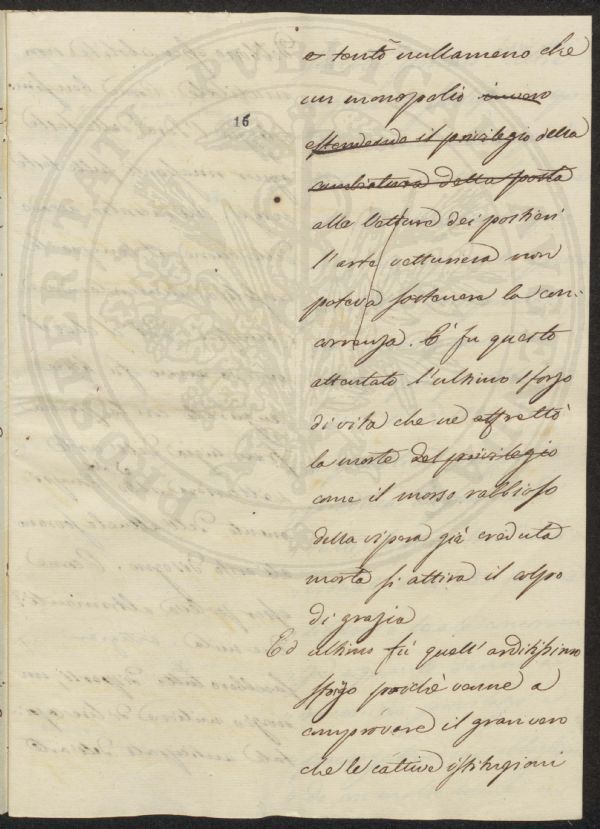 e tentò nullameno che
un monopolio invero
16
estendendo il privilegio della
cambiatura della posta
alle Vetture dei postieri
l'arte vetturiera non
poteva sostenere la con-
correnza. E' fu questo
attentato l'ultimo sforzo
di vita che ne affrettò
la morte del privilegio
come il morso rabbioso
della vipera già creduta
morta si attira il colpo
di grazia
Ed ultimo fù quell'arditissimo
sforzo perchè venne a
comprovare il gran vero
che le cattive istituzioni